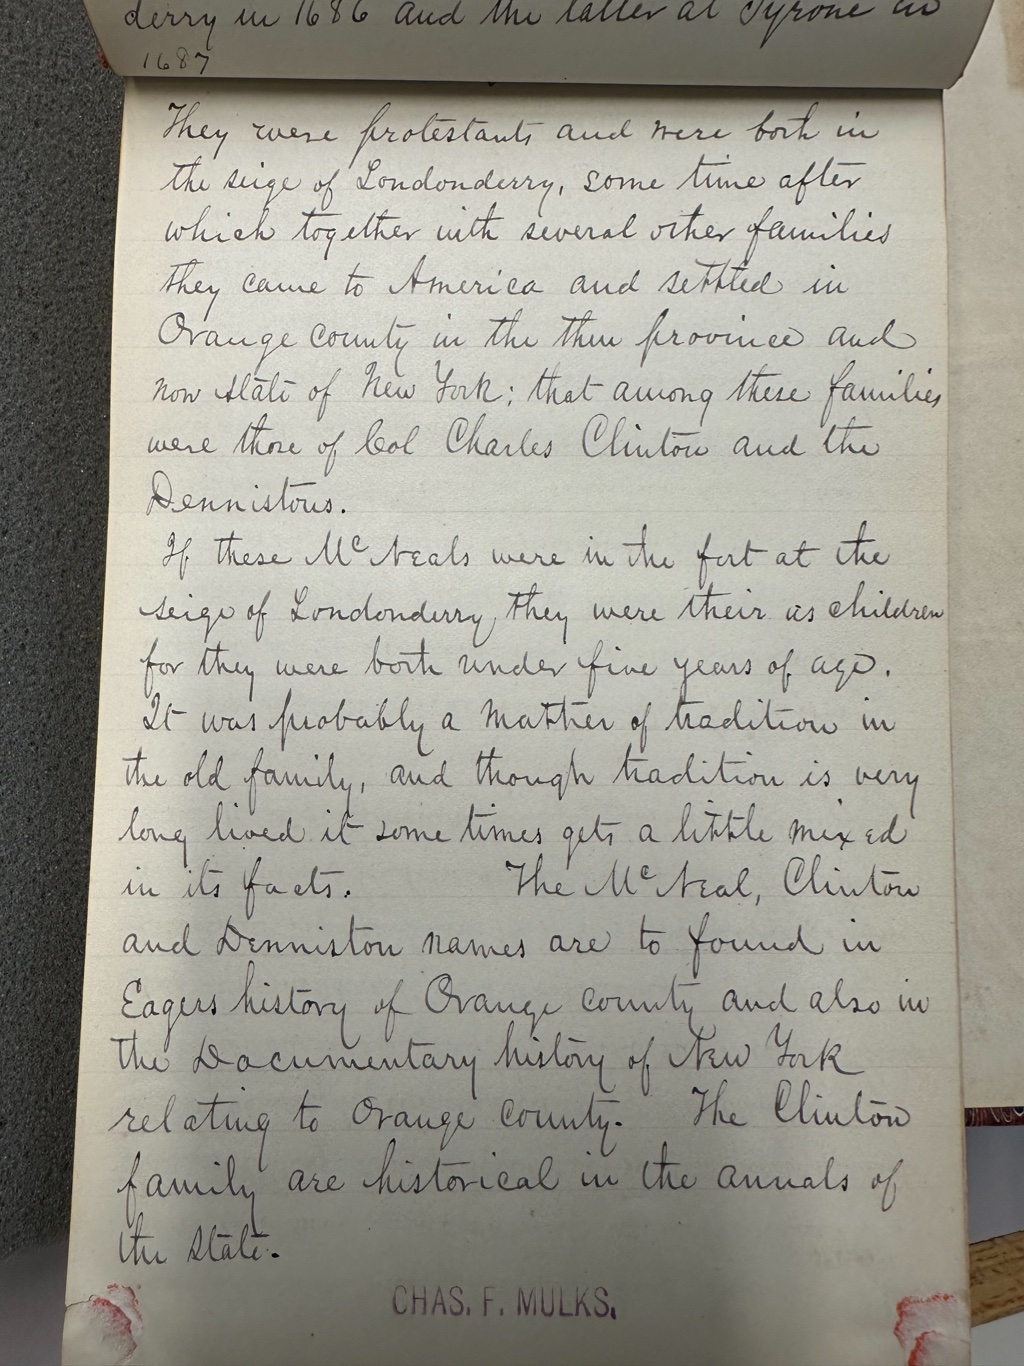 derry in 1686 and the latter at Tyrone in
1687
They were protestants and were both in
the seige of Londonderry, some time after
which together with several other families
they came to America and settted in
Orange county in the then province and
now state of New York; that among these families
were those of Col Charles Clinton and the
Dennistons.
If these McNeals were in the fort at the
seige of Londonderry, they were their as children
for they were both under five years of age.
It was probably a matter of tradition in
the old family, and though tradition is very
long lived it some times gets a little mixed
in its facts. The McNeal, Clinton
and Denniston names are to found in
Eagers history of Orange county and also in
the Documentary history of New York
relating to Orange county. The Clinton
family are historical in the annals of
the state.
CHAS. F. MULKS.